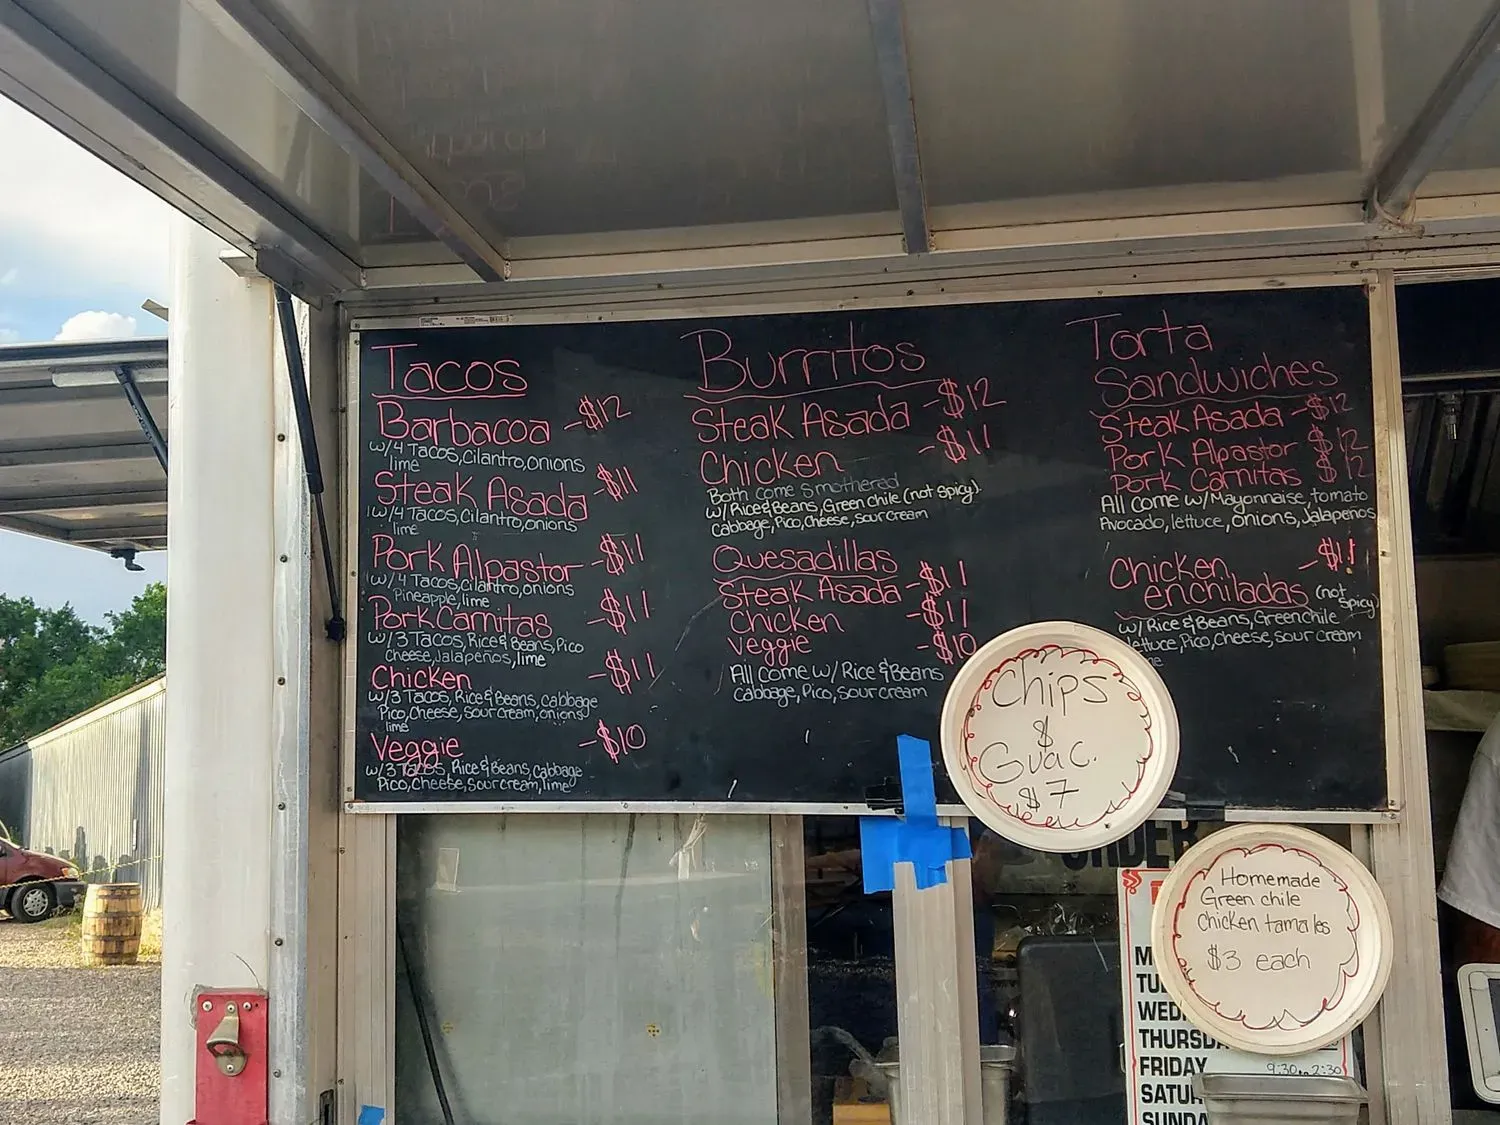 Tacos
Barbacoa -$12
w/4 Tacos, cilantro, onions
lime
Steak Asada -$11
w/4 Tacos, cilantro, onions
lime
Pork Alpastor -$11
w/4 Tacos, cilantro, onions
Pineapple, lime
Pork Carnitas -$11
w/3 Tacos, Rice & Beans, Pico
Cheese, Jalapeños, lime
Chicken -$11
w/3 Tacos, Rice & Beans, cabbage
Pico, Cheese, Sour cream, onions
lime
Veggie -$10
w/3 Tacos, Rice & Beans, Cabbage
Pico, Cheese, Sour cream, lime
Burritos
Steak Asada -$12
Chicken -$11
Both come smothered
w/ Rice & Beans, Green chile (not spicy)
Cabbage, Pico, Cheese, sour cream
Quesadillas
Steak Asada -$11
Chicken -$11
Veggie -$10
All come w/ Rice & Beans
Cabbage, Pico, Sour cream
Torta
Sandwiches
Steak Asada -$12
Pork Alpastor $12
Pork Carnitas $12
All come w/ Mayonnaise, tomato
Avocado, lettuce, onions, Jalapeños
Chicken -$11
enchiladas (not
spicy)
w/ Rice & Beans, Green chile
lettuce, Pico, Cheese, sour cream
Chips
&
Guac.
$7
ORDER
Homemade
Green chile
Chicken tamales
$3 each
M
TUE
WED
THURSDA
FRIDAY 9:30 to 2:30
SATUR
SUNDA